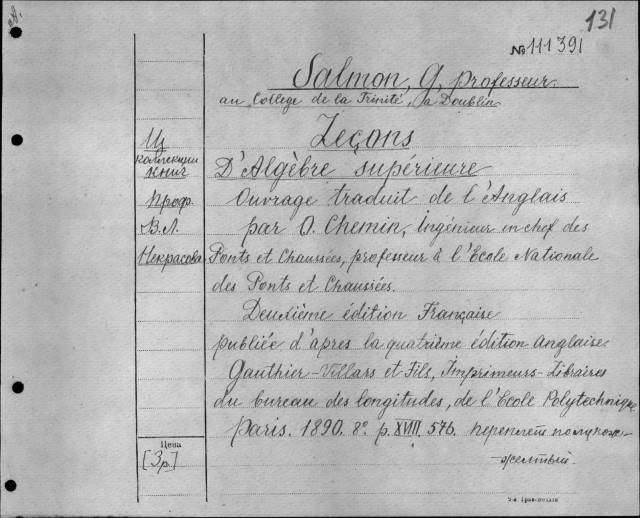 131
№ 111391
Salmon, G, professeur
au College de la Trinité, à Doublin
Leçons
D'Algèbre supérieure
Ouvrage traduit de l'Anglais
par O. Chemin, Ingénieur en chef des
Ponts et Chaussées, professeur à l'Ecole Nationale
des Ponts et Chaussées.
Deuxième édition Française
publiée d'après la quatrième édition Anglaise
Gauthier-Villars et Fils, Imprimeurs-Libraires
du bureau des longitudes, de l'Ecole Polytechnique
Paris. 1890. 8°. p. XVIII. 576. переплет полукожа-
-желтый.
Из
коллекции
книг
Проф.
В.Л.
Некрасова
Цена
[3р]